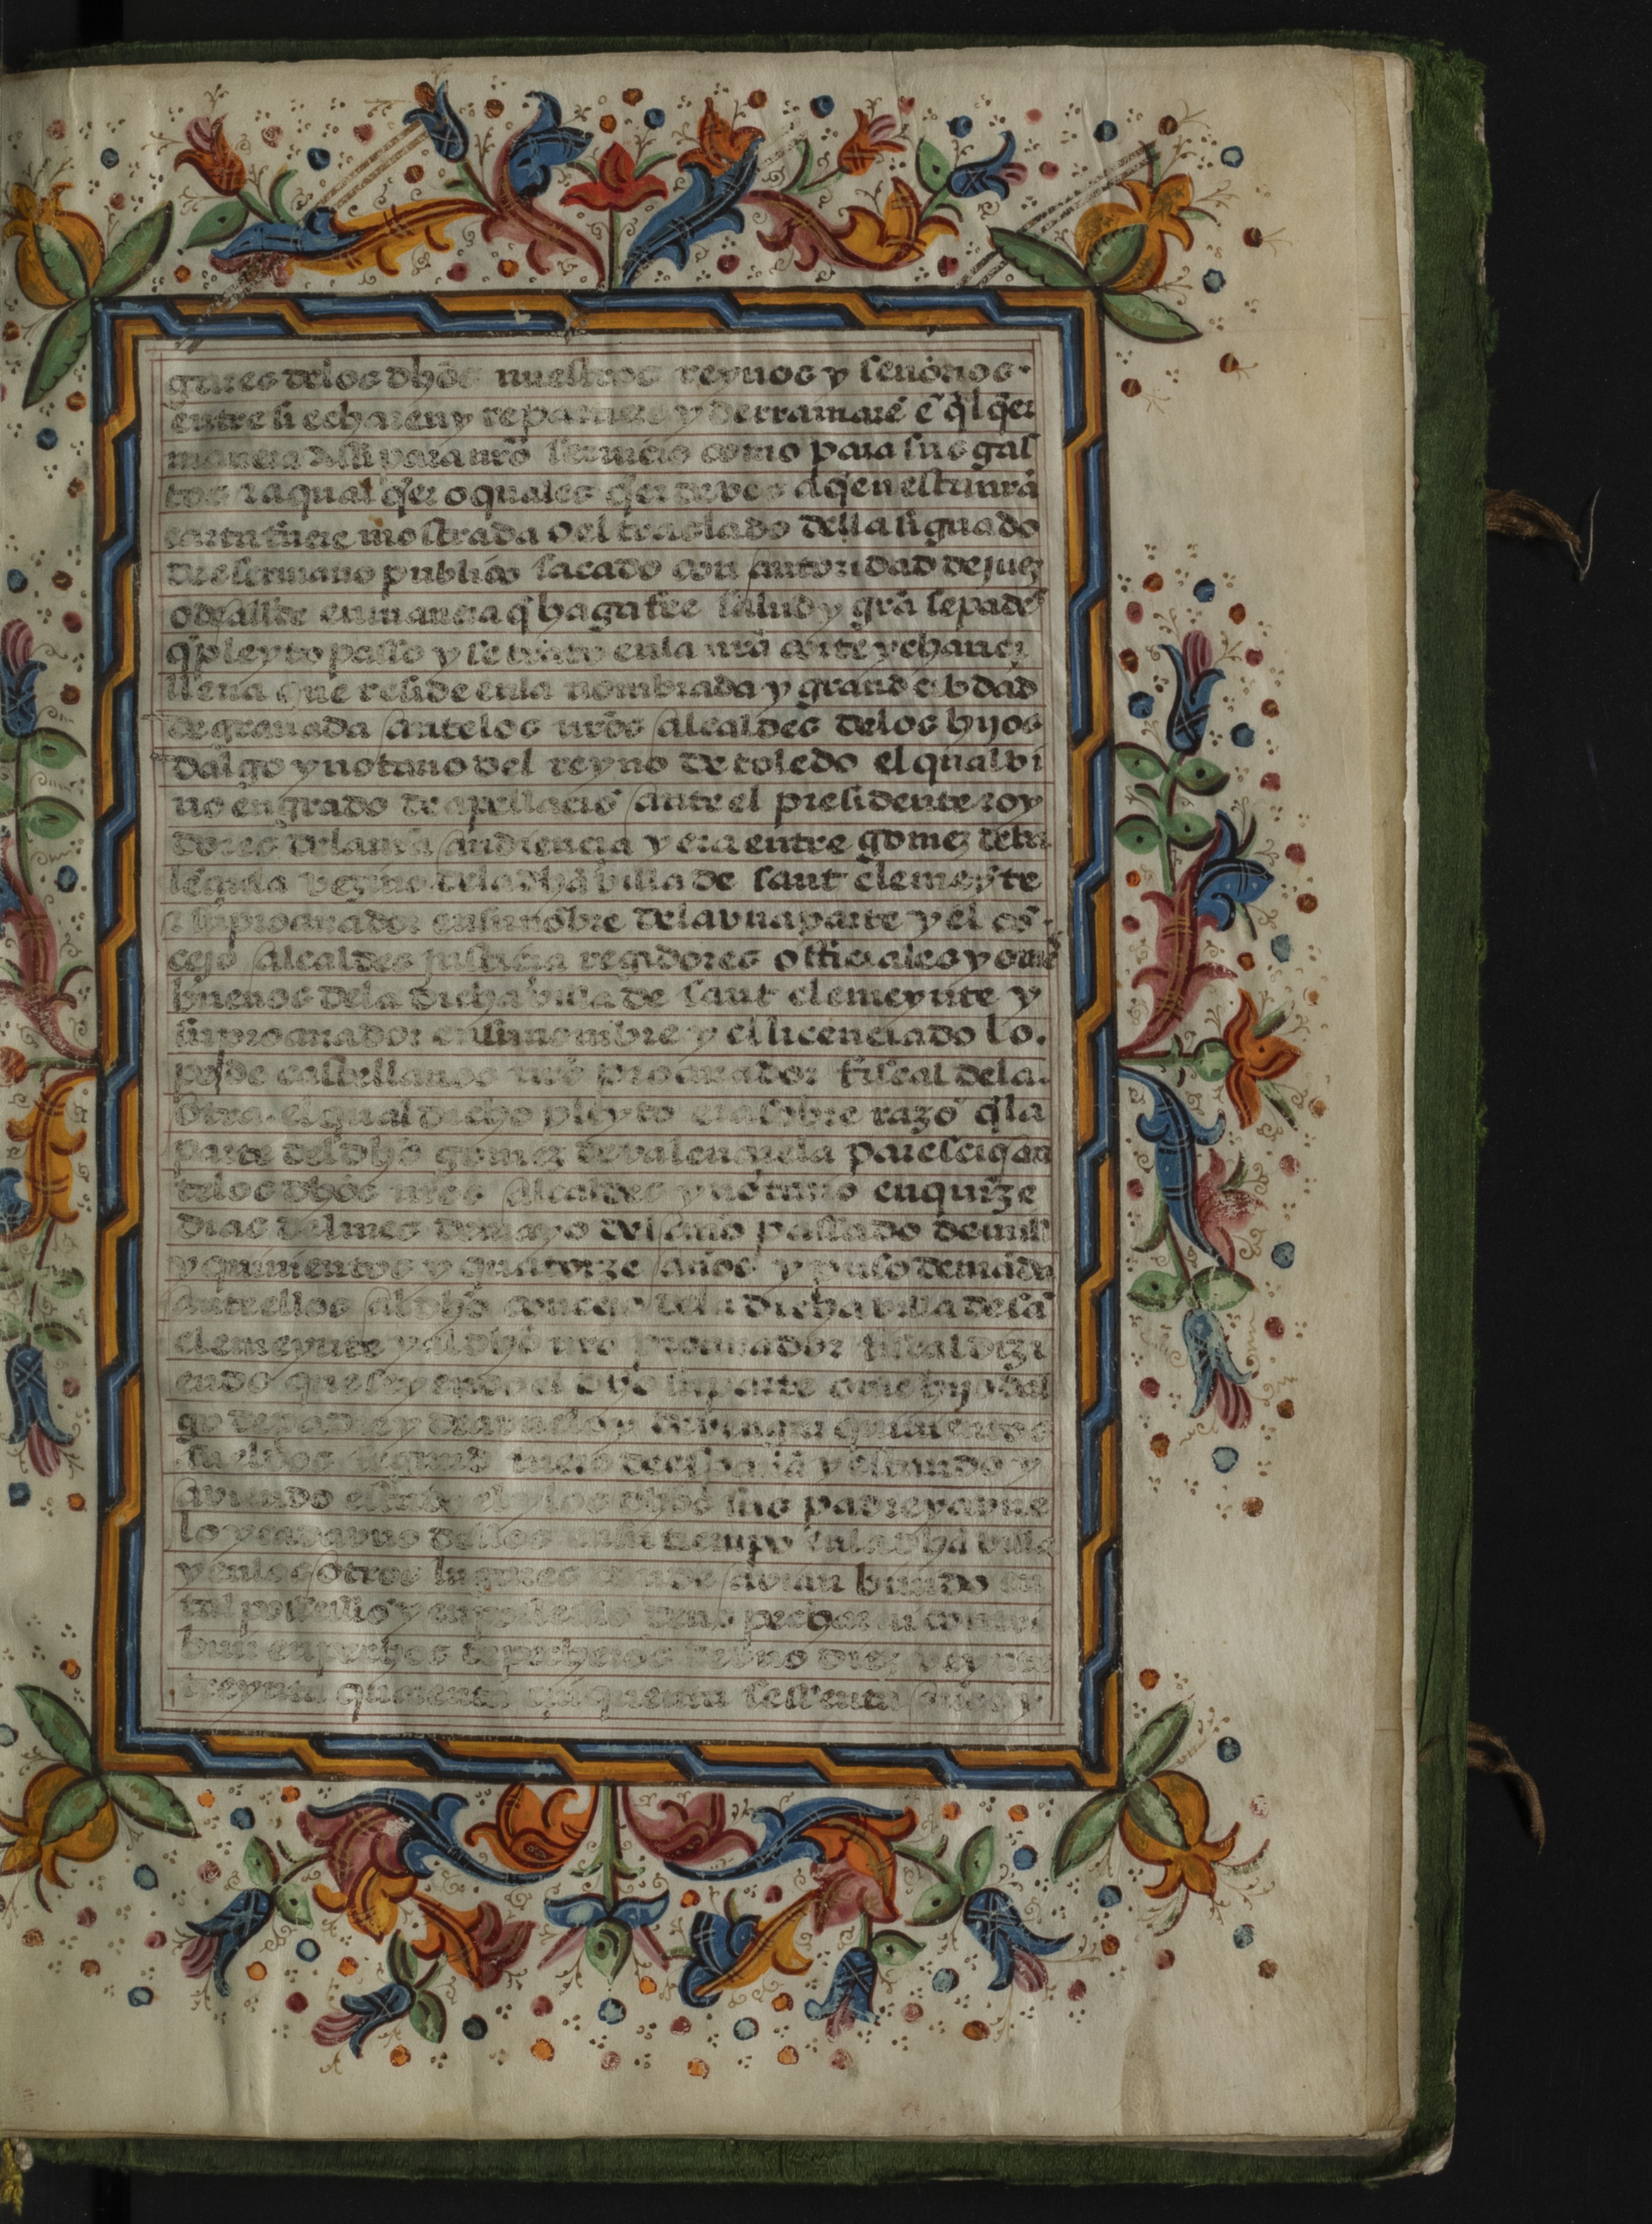 gares delos dhõs nuestros reynos y señorios.
entre si echaren y repartierẽ y derramarẽ ẽ q̃l q̃er
manera assi para nr̃o seruicio como para sus gas
tos τ a qual q̃er o quales q̃er de vos a q̃en esta nr̃a
carta fuere mostrada o el traslado della signado
de escriuano publico sacado con autoridad de juez
o de alcde en manera q̃ haga fee salud y gr̃a sepades
q̃ pleyto passo y se trato enla nr̃a corte y chanci
lleria que reside enla nombrada y grand cibdad
de granada antelos nr̃os alcaldes delos hijos
dalgo y notario del reyno de toledo el qual vi
no en grado de apellaciõ ante el presidente τ oy
dores dela nr̃a audiencia y era entre gomez de va
lẽçuela vezino dela dhã villa de sant clemeyte
τ su procurador en su nõbre dela vna parte y el cõ
cejo alcaldes justicia regidores officiales y omẽs
buenos dela dicha villa de sant clemeynte y
su procurador en su nombre y el licenciado lo.
pe de castellanos nr̃o procurador fiscal dela.
otra. el qual dicho pleyto era sobre razõ q̃ la
parte del dhõ gomez de valençuela parescio an
telos dhõs nr̃os alcaldes y notario en quinze
dias del mes de mayo del año passado de mill
y quinientos y quatorze años y puso demãda
ante ellos al dhõ concejo dela dicha villa de sã
clemeynte y al dhõ nr̃o procurador fiscal dizi
endo que seyendo el dhõ su parte ome hijo dal
go de padre y de auuelo y de vengar quinientos
sueldos segund fuero de españa y estando y
auiendo estado el y los dhõs sus padre y avue
lo y cada vno dellos en su tiempo enla dhã villa
y enlos otros lugares donde avian biuido en
tal possessiõ y en possessiõ de no pechar ni contri
buir en pechos de pecheros de vno diez veynte
treynta quarenta cinquenta sessenta años y